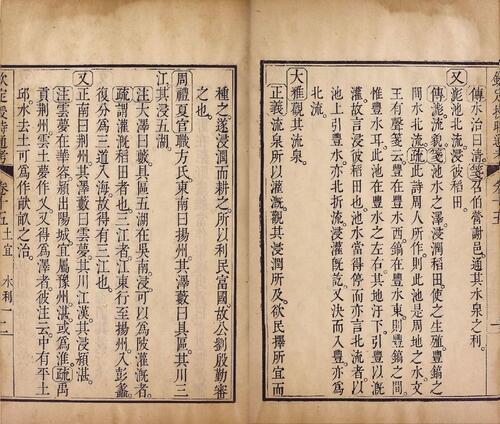 傳水治曰清箋召伯營謝邑。通其水泉之利。
又滮池北流。浸彼稻田。
傳滮流貌箋池水之澤。浸潤稻田。使之生殖。豐鎬之
間。水北流。疏此詩周人所作。則此池是周地之水。文
王有聲箋云。豐在豐水西。鎬在豐水東。則豐鎬之間
惟豐水耳。此池在豐水之左右。其地汙下。引豐以
灌。故言浸彼稻田也。池水當得停而亦言北流者。以
池上引豐水。亦北折流。浸灌既訖。又決而入豐。亦為
北流。
大雅觀其流泉。
正義流泉所以灌溉。觀其浸潤所及。欲民擇所宜而
種之。遂浸潤而耕之。所以利民富國。故公劉殷勤審
之也。
周禮夏官職方氏。東南曰揚州。其澤藪曰具區。其川三
江。其浸五湖
注大澤曰藪。具區五湖在吳南。浸可以為陂灌溉者。
疏謂灌溉稻田者也。三江者。江東行至揚州。入彭蠡。
復分為三道入海。故得有三江也。
又正南曰荊州。其澤藪曰雲夢。其川江漢。其浸潁湛。
注雲夢在華容。潁出陽城。宜屬豫州。湛或為淮。疏禹
貢荊州。雲土夢作乂。又得為澤者。彼注云。中有平土
邱水去土可為作畎畝之治。
欽定授時通考 卷十五 土宜 水利一 二